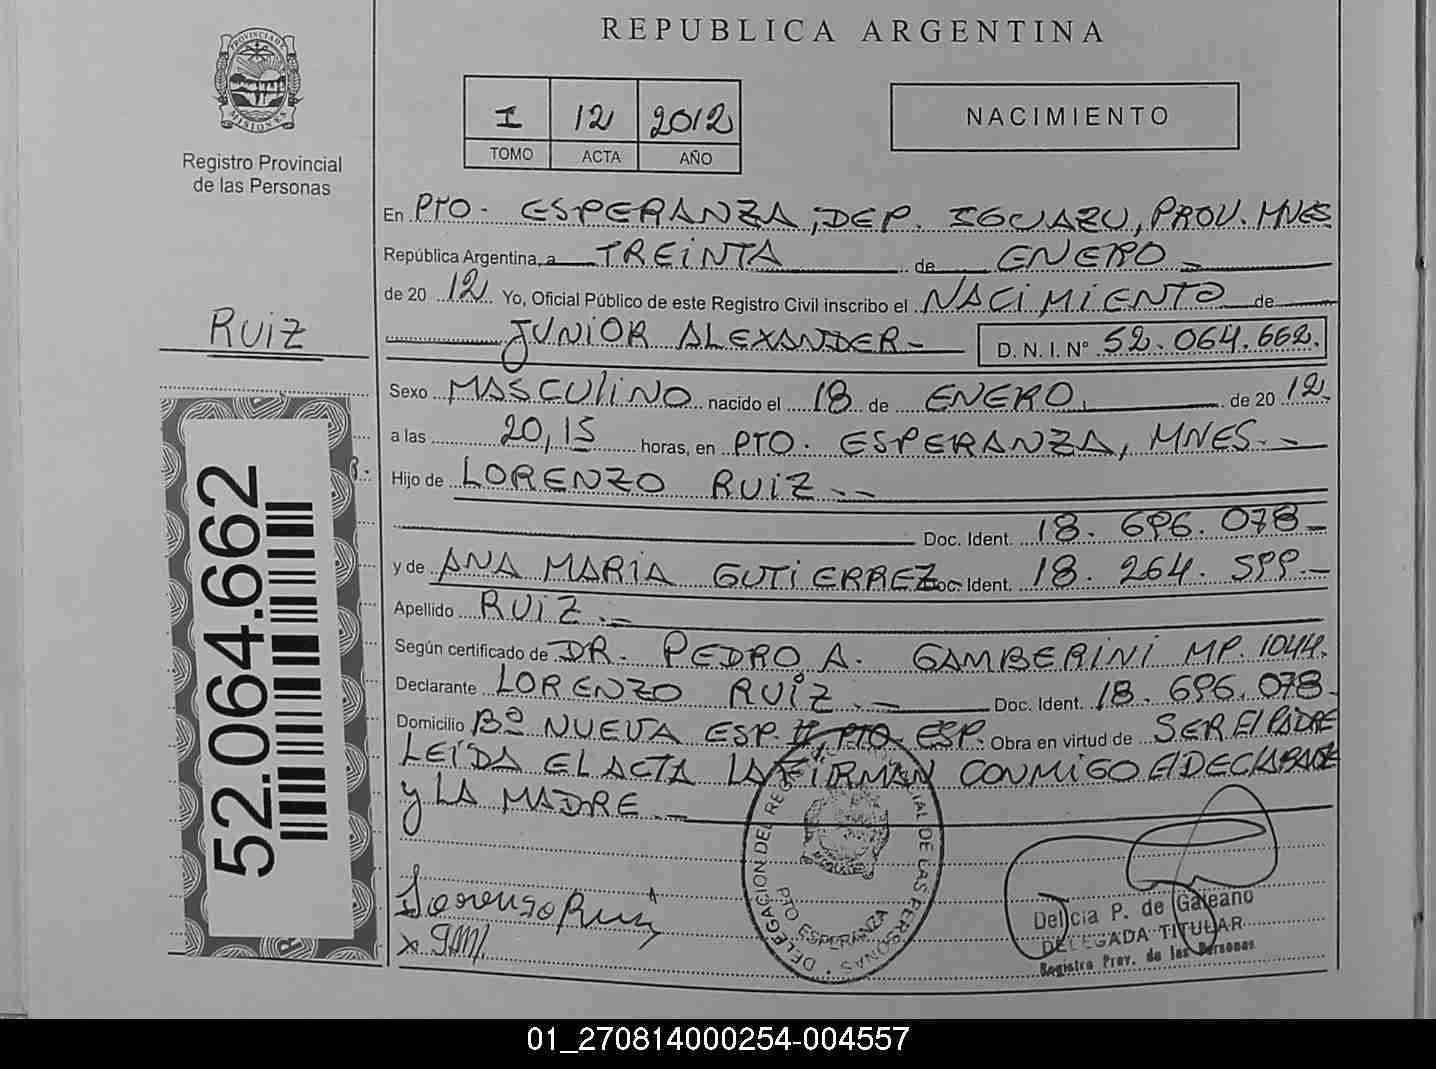 REPUBLICA ARGENTINA
PROVINCIA DE MISIONES
Registro Provincial
de las Personas
I 12 2012
TOMO ACTA AÑO
NACIMIENTO
En PTO. ESPERANZA, DEP. IGUAZU, PROV. MNES
República Argentina, a TREINTA de ENERO
de 20 12 Yo, Oficial Público de este Registro Civil inscribo el NACIMIENTO de
RUIZ
JUNIOR ALEXANDER - D. N. I. Nº 52.064.662.
Sexo MASCULINO nacido el 18 de ENERO de 20 12.
a las 20,15 horas, en PTO. ESPERANZA, MNES.-
Hijo de LORENZO RUIZ.-
Doc. Ident. 18. 696. 078-
y de ANA MARIA GUTIERREZ Doc. Ident. 18. 264. 599.-
Apellido RUIZ.-
Según certificado de DR. PEDRO A. GAMBERINI MP. 1044.
Declarante LORENZO RUIZ.- Doc. Ident. 18. 696. 078-
Domicilio Bº NUEVA ESP. II, PTO. ESP. Obra en virtud de SER El PADRE
LEIDA EL ACTA LA FIRMAN CONMIGO El DECLARANTE
y LA MADRE.-
52.064.662
DELEGACION DEL REGISTRO PROVINCIAL DE LAS PERSONAS
PTO ESPERANZA
Lorenzo Ruiz
Delicia P. de Galeano
DELEGADA TITULAR
Registro Prov. de las Personas
01_270814000254-004557